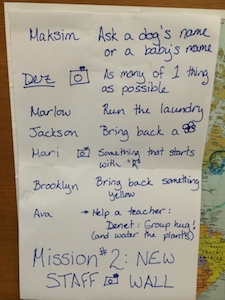 Maksim Ask a dog's name
or a baby's name
Dez As many of 1 thing
as possible
Marlow Run the laundry
Jackson Bring back a
Mari Something that starts
with "R"
Brooklyn Bring back something
yellow
Ava → Help a teacher:
Denet: Group hug!
(and water the plants)
Mission #2: NEW
STAFF WALL